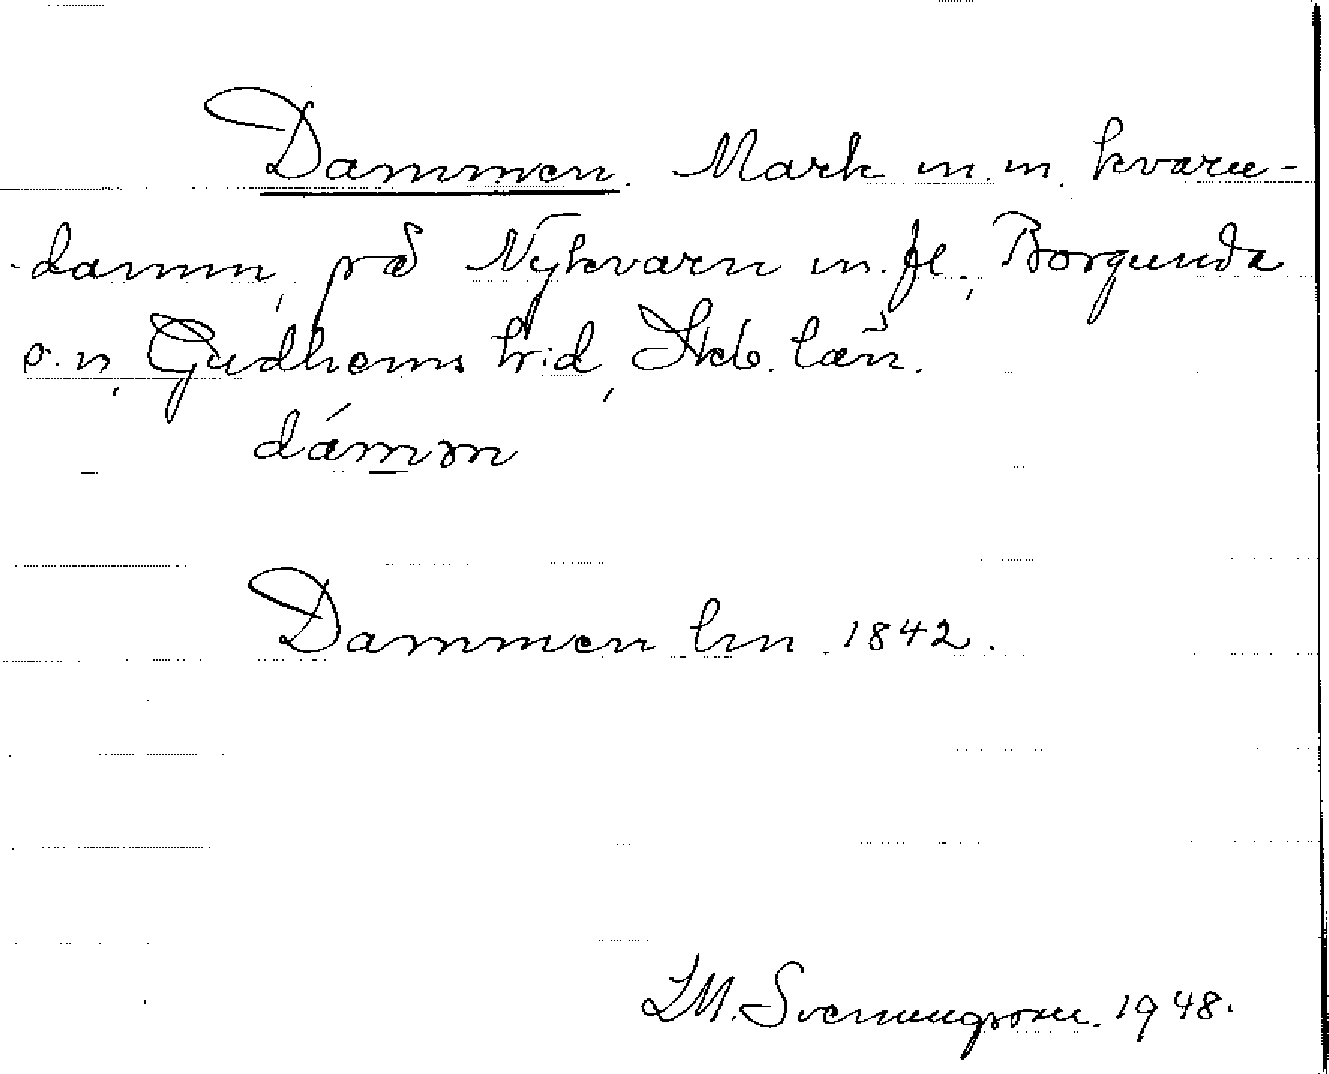 Dammen. Mark m. m. kvarn-
damm, på Nykvarn m. fl., Borgunda
s:n, Gudhems h:d, Skb. län.
dámən
Dammen lm 1842.
I M. Svenningsson. 1948.